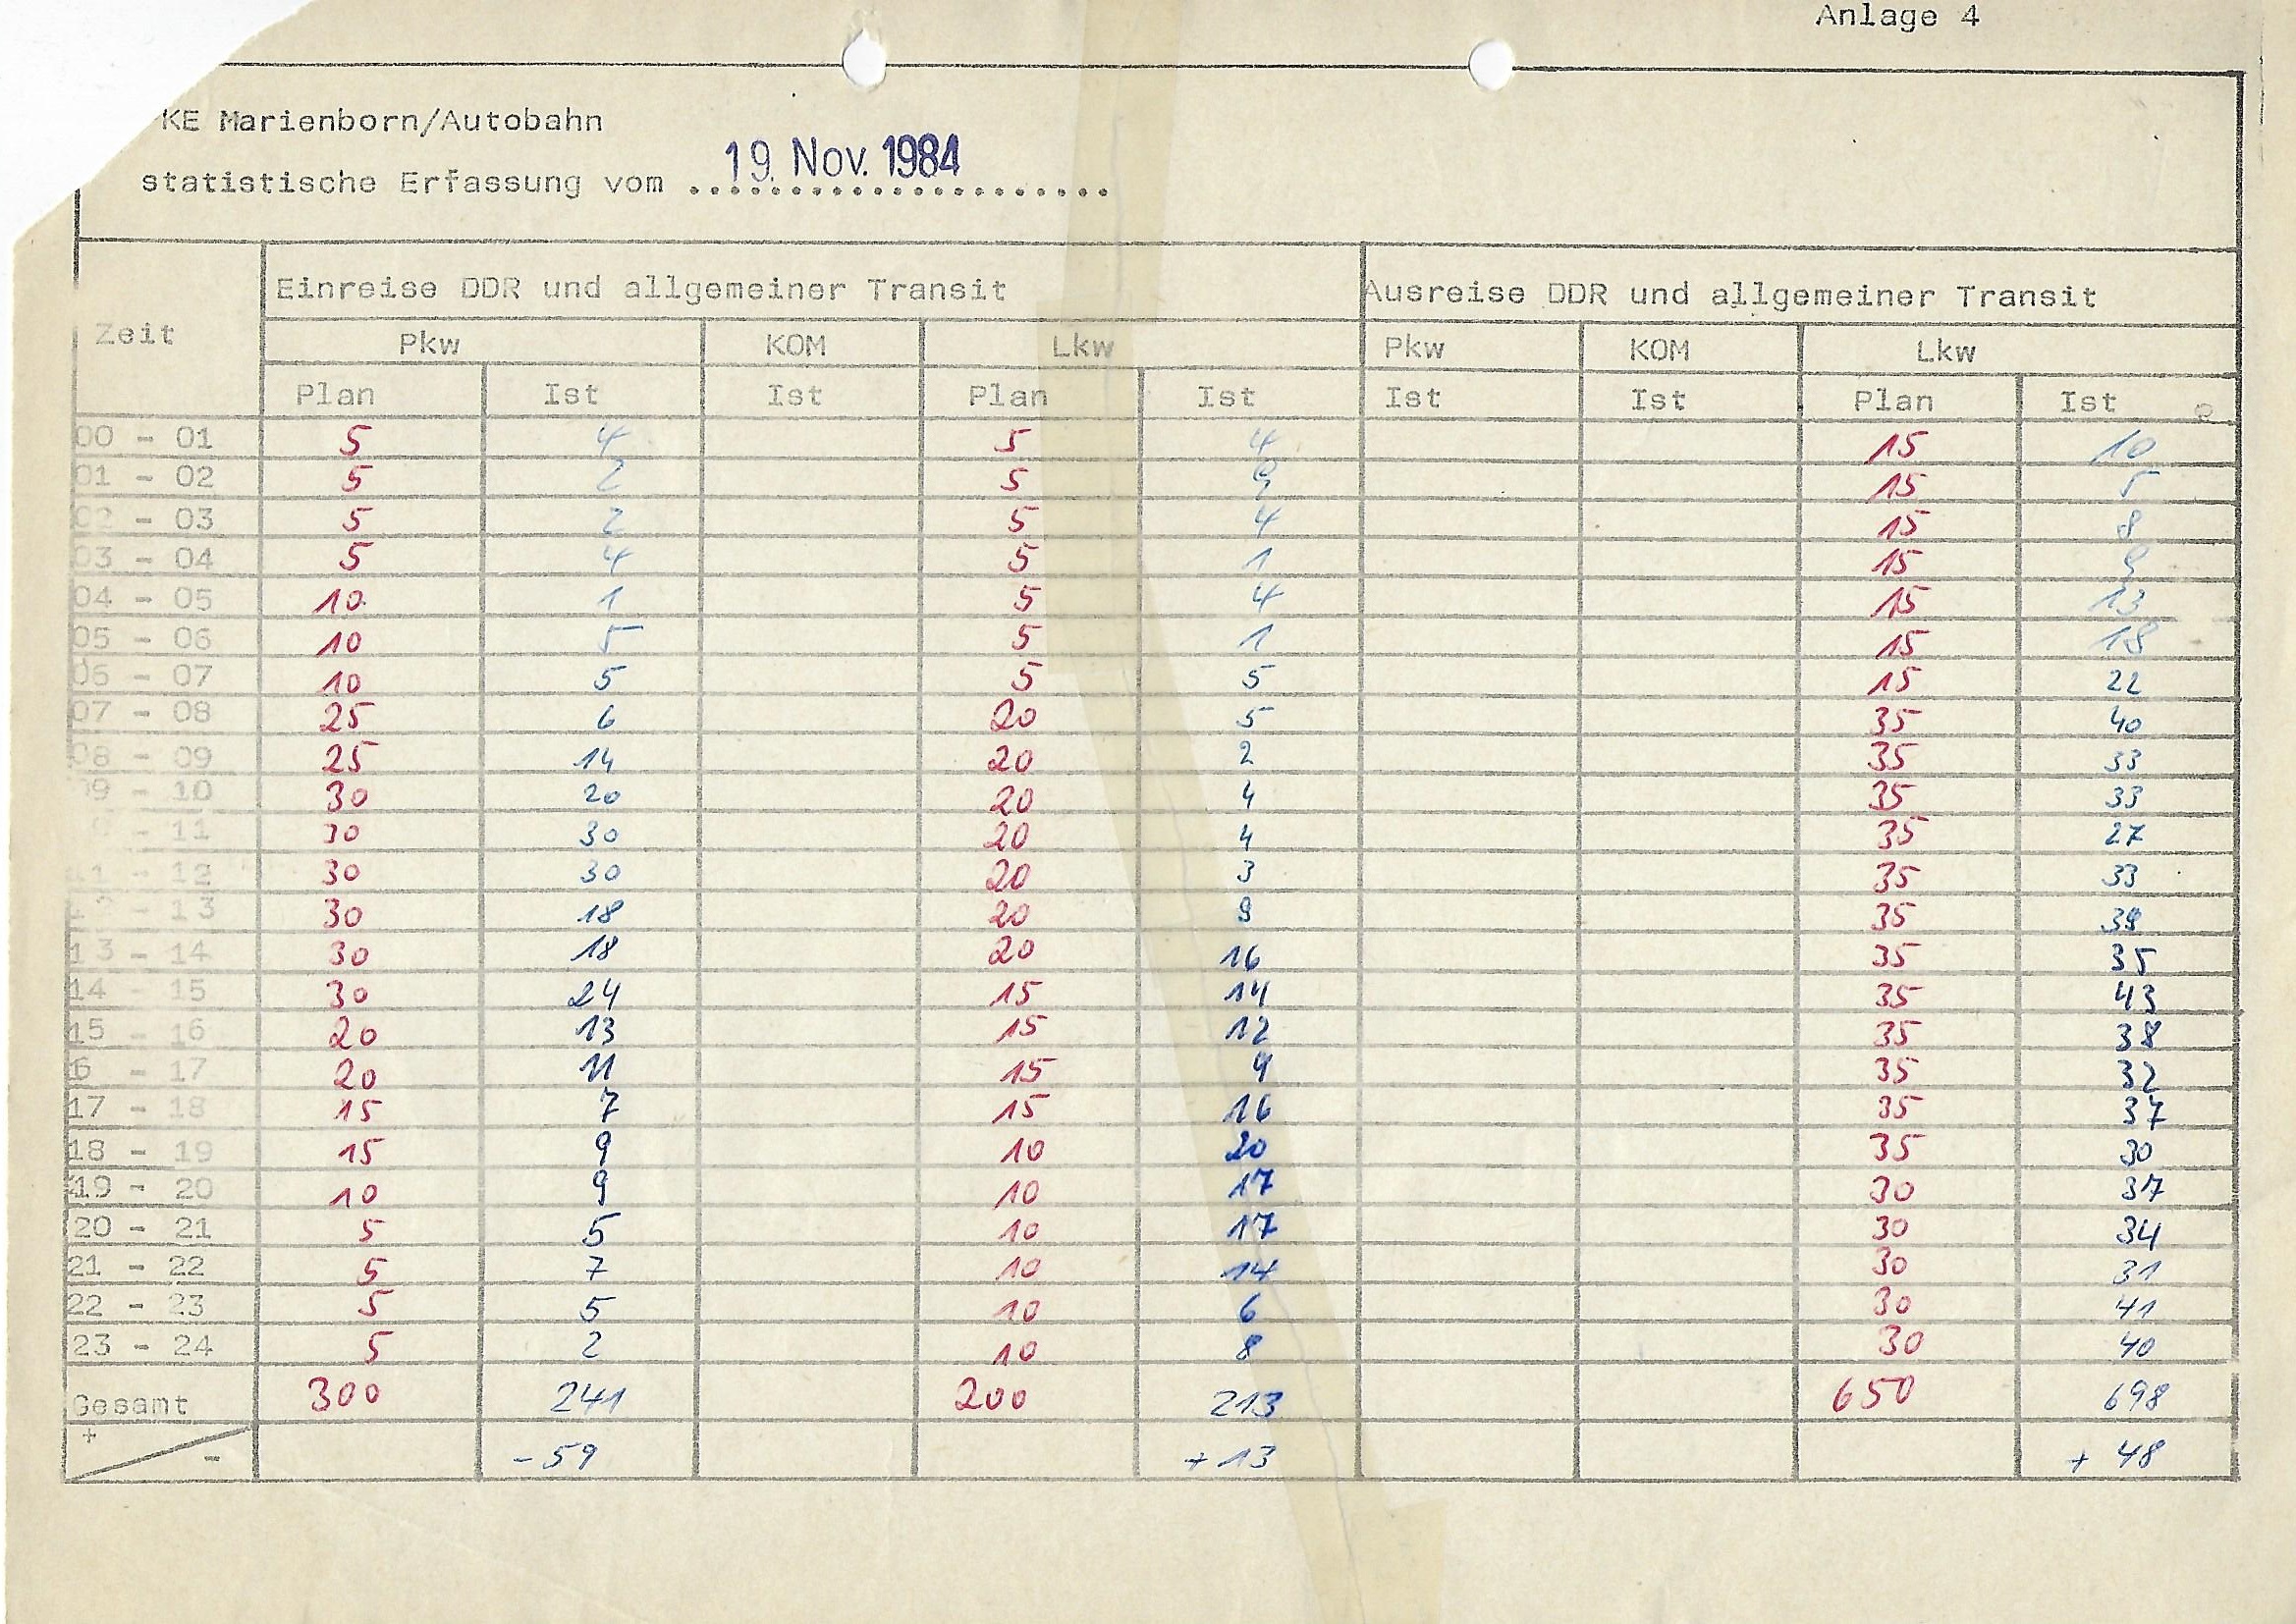 Anlage 4
KE Marienborn/Autobahn
statistische Erfassung vom 19. Nov. 1984
Einreise DDR und allgemeiner Transit Ausreise DDR und allgemeiner Transit
Zeit
Pkw KOM Lkw Pkw KOM Lkw
Plan Ist Ist Plan Ist Ist Ist Plan Ist
00 - 01 5 4 5 4 15 10
01 - 02 5 2 5 9 15 5
02 - 03 5 2 5 4 15 8
03 - 04 5 4 5 1 15 9
04 - 05 10 1 5 4 15 13
05 - 06 10 5 5 1 15 18
06 - 07 10 5 5 5 15 22
07 - 08 25 6 20 5 35 40
08 - 09 25 14 20 2 35 33
09 - 10 30 20 20 4 35 33
- 11 30 30 20 4 35 27
11 - 12 30 30 20 3 35 33
12 - 13 30 18 20 9 35 39
13 - 14 30 18 20 16 35 35
14 - 15 30 24 15 14 35 43
15 - 16 20 13 15 12 35 38
6 - 17 20 11 15 9 35 32
17 - 18 15 7 15 16 35 37
18 - 19 15 9 10 20 35 30
19 - 20 10 9 10 17 30 37
20 - 21 5 5 10 17 30 34
21 - 22 5 7 10 14 30 31
22 - 23 5 5 10 6 30 41
23 - 24 5 2 10 8 30 40
Gesamt 300 241 200 213 650 698
+ - -59 +13 + 48